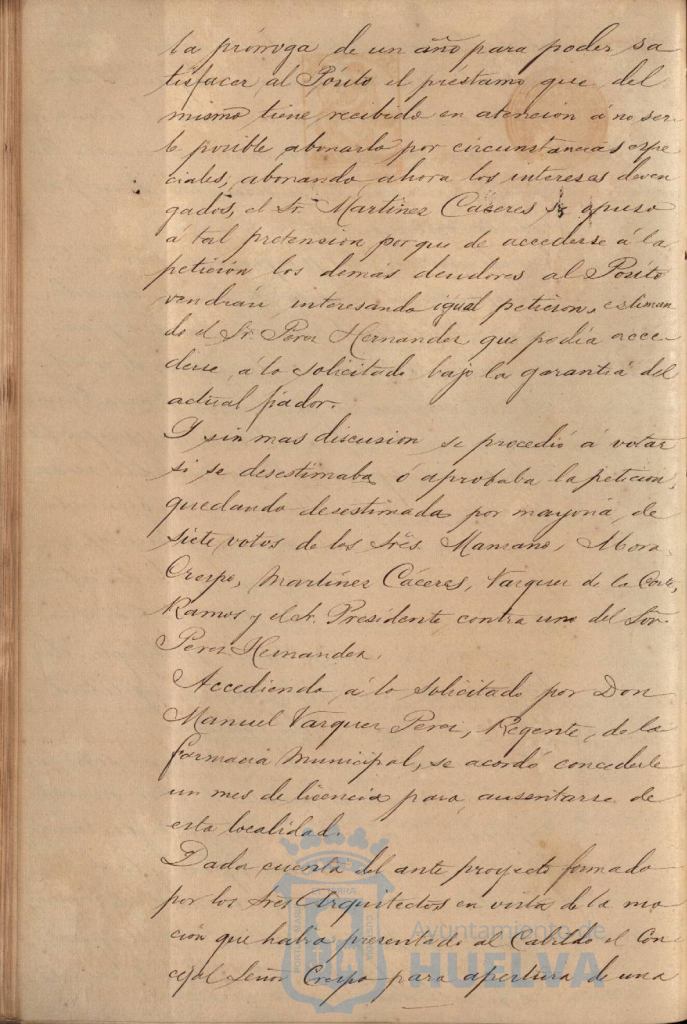 la prórroga de un año para poder sa
tisfacer al Pósito el préstamo que del
mismo tiene recibido en atencion á no ser-
le posible abonarlo por circunstancias espe
ciales, abonando ahora los intereses deven
gados, el Sr. Martinez Cáceres se opuso
á tal pretension porque de accederse á la
peticion los demás deudores al Pósito
vendrian interesando igual peticion, estiman
do el Sr. Perez Hernandez que podia acce-
derse á lo solicitado bajo la garantia del
actual fiador.
Y sin mas discusion se procedió á votar
si se desestimaba ó aprobaba la peticion,
quedando desestimada por mayoria de
siete votos de los Sres. Manzano, Mora,
Crespo, Martinez Cáceres, Vazquez de la Corte,
Ramos y el Sr. Presidente contra uno del Sor.
Perez Hernandez.
Accediendo á lo solicitado por Don
Manuel Vazquez Perez, Regente de la
farmacia Municipal, se acordó concederle
un mes de licencia para ausentarse de
esta localidad.
Dada cuenta del ante proyecto formado
por los Sres Arquitectos en vista de la mo
cion que habia presentado al Cabildo el Con
cejal Señor Crespo para apertura de una
Ayuntamiento de
HUELVA